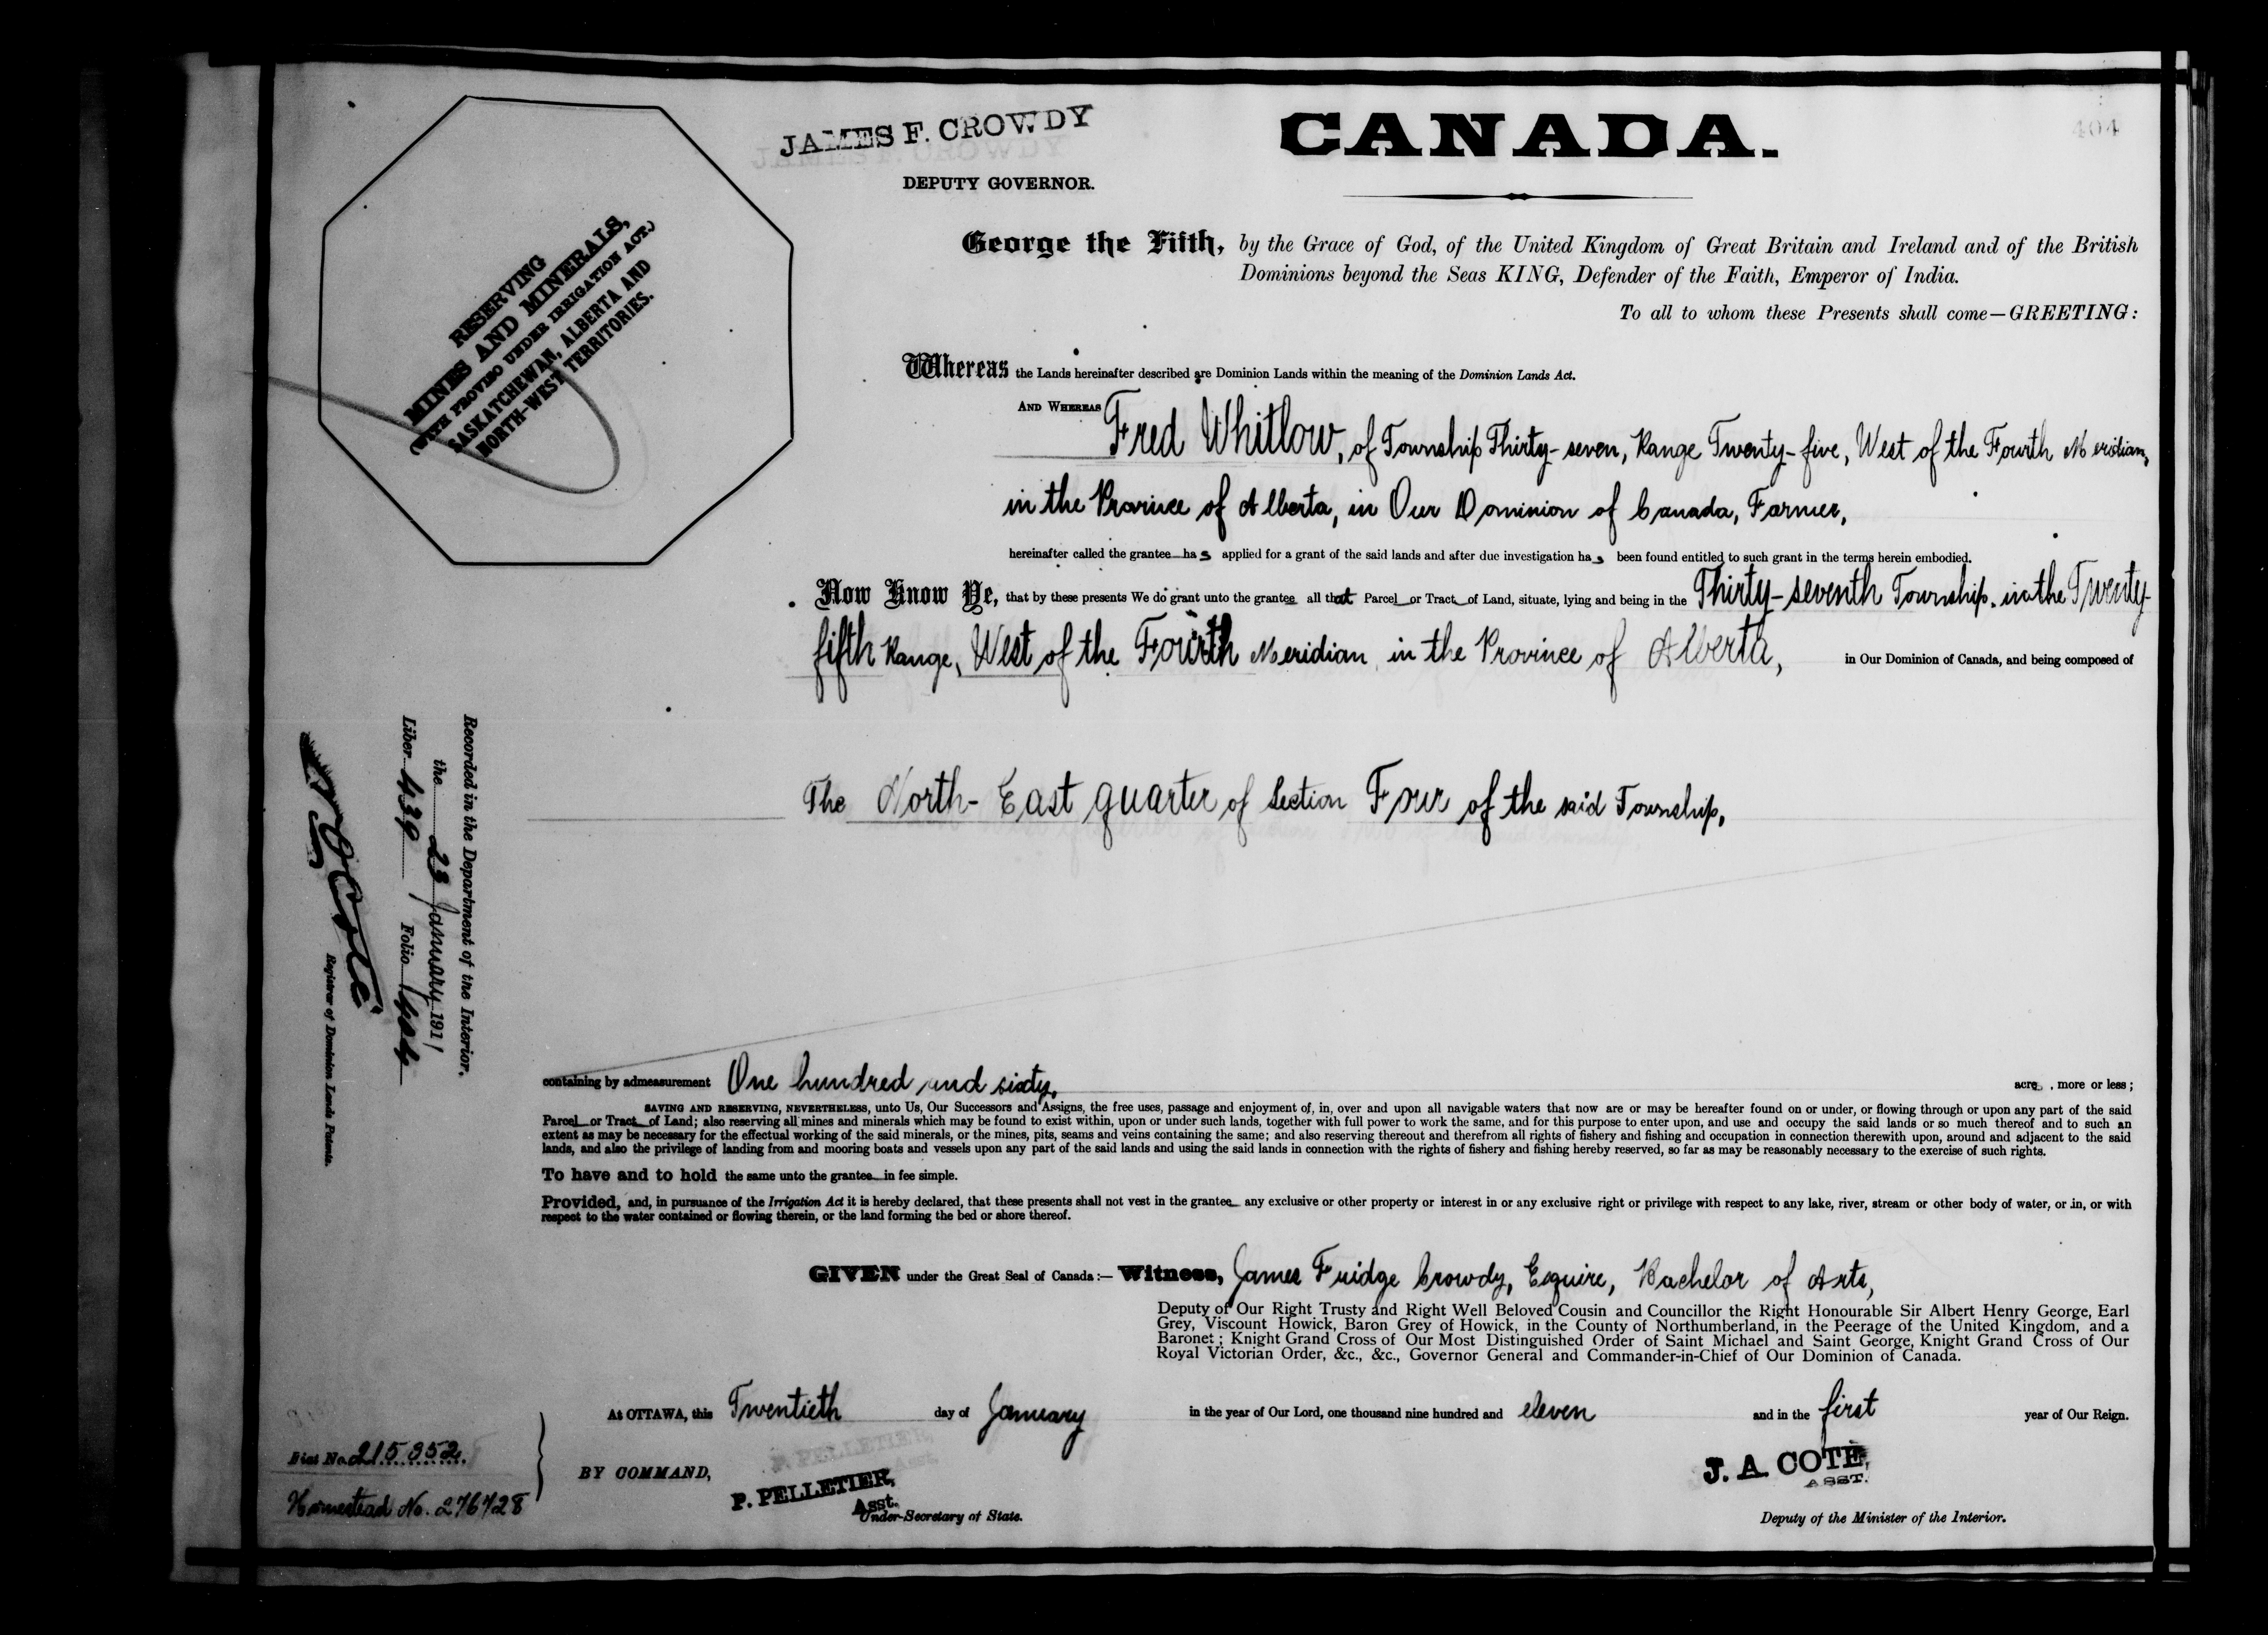 JAMES F. CROWDY
DEPUTY GOVERNOR.
CANADA.
404
RESERVING
MINES AND MINERALS,
(WITH PROVISO UNDER IRRIGATION ACT.)
SASKATCHEWAN, ALBERTA AND
NORTH-WEST TERRITORIES.
George the Fifth, by the Grace of God, of the United Kingdom of Great Britain and Ireland and of the British
Dominions beyond the Seas KING, Defender of the Faith, Emperor of India.
To all to whom these Presents shall come—GREETING:
Whereas the Lands hereinafter described are Dominion Lands within the meaning of the Dominion Lands Act.
AND WHEREAS Fred Whitlow, of Township Thirty-seven, Range Twenty-five, West of the Fourth Meridian,
in the Province of Alberta, in Our Dominion of Canada, Farmer,
hereinafter called the grantee has applied for a grant of the said lands and after due investigation has been found entitled to such grant in the terms herein embodied.
Now Know Ye, that by these presents We do grant unto the grantee all that Parcel or Tract of Land, situate, lying and being in the Thirty-seventh Township, in the Twenty-
fifth Range, West of the Fourth Meridian, in the Province of Alberta, in Our Dominion of Canada, and being composed of
The North-East quarter of Section Four of the said Township,
Recorded in the Department of the Interior,
the 23 January 1911
Liber 439 Folio 404
N O Coté
Registrar of Dominion Lands Patents.
containing by admeasurement One hundred and sixty, acres, more or less;
SAVING AND RESERVING, NEVERTHELESS, unto Us, Our Successors and Assigns, the free uses, passage and enjoyment of, in, over and upon all navigable waters that now are or may be hereafter found on or under, or flowing through or upon any part of the said
Parcel or Tract of Land; also reserving all mines and minerals which may be found to exist within, upon or under such lands, together with full power to work the same, and for this purpose to enter upon, and use and occupy the said lands or so much thereof and to such an
extent as may be necessary for the effectual working of the said minerals, or the mines, pits, seams and veins containing the same; and also reserving thereout and therefrom all rights of fishery and fishing and occupation in connection therewith upon, around and adjacent to the said
lands, and also the privilege of landing from and mooring boats and vessels upon any part of the said lands and using the said lands in connection with the rights of fishery and fishing hereby reserved, so far as may be reasonably necessary to the exercise of such rights.
To have and to hold the same unto the grantee in fee simple.
Provided, and, in pursuance of the Irrigation Act it is hereby declared, that these presents shall not vest in the grantee any exclusive or other property or interest in or any exclusive right or privilege with respect to any lake, river, stream or other body of water, or in, or with
respect to the water contained or flowing therein, or the land forming the bed or shore thereof.
GIVEN under the Great Seal of Canada:— Witness, James Fuidge Crowdy, Esquire, Bachelor of Arts,
Deputy of Our Right Trusty and Right Well Beloved Cousin and Councillor the Right Honourable Sir Albert Henry George, Earl
Grey, Viscount Howick, Baron Grey of Howick, in the County of Northumberland, in the Peerage of the United Kingdom, and a
Baronet; Knight Grand Cross of Our Most Distinguished Order of Saint Michael and Saint George, Knight Grand Cross of Our
Royal Victorian Order, &c., &c., Governor General and Commander-in-Chief of Our Dominion of Canada.
At OTTAWA, this Twentieth day of January in the year of Our Lord, one thousand nine hundred and eleven and in the first year of Our Reign.
BY COMMAND,
P. PELLETIER,
Asst.
Under-Secretary of State.
J. A. COTE,
ASST.
Deputy of the Minister of the Interior.
Fiat No. 215352.
Homestead No. 276728